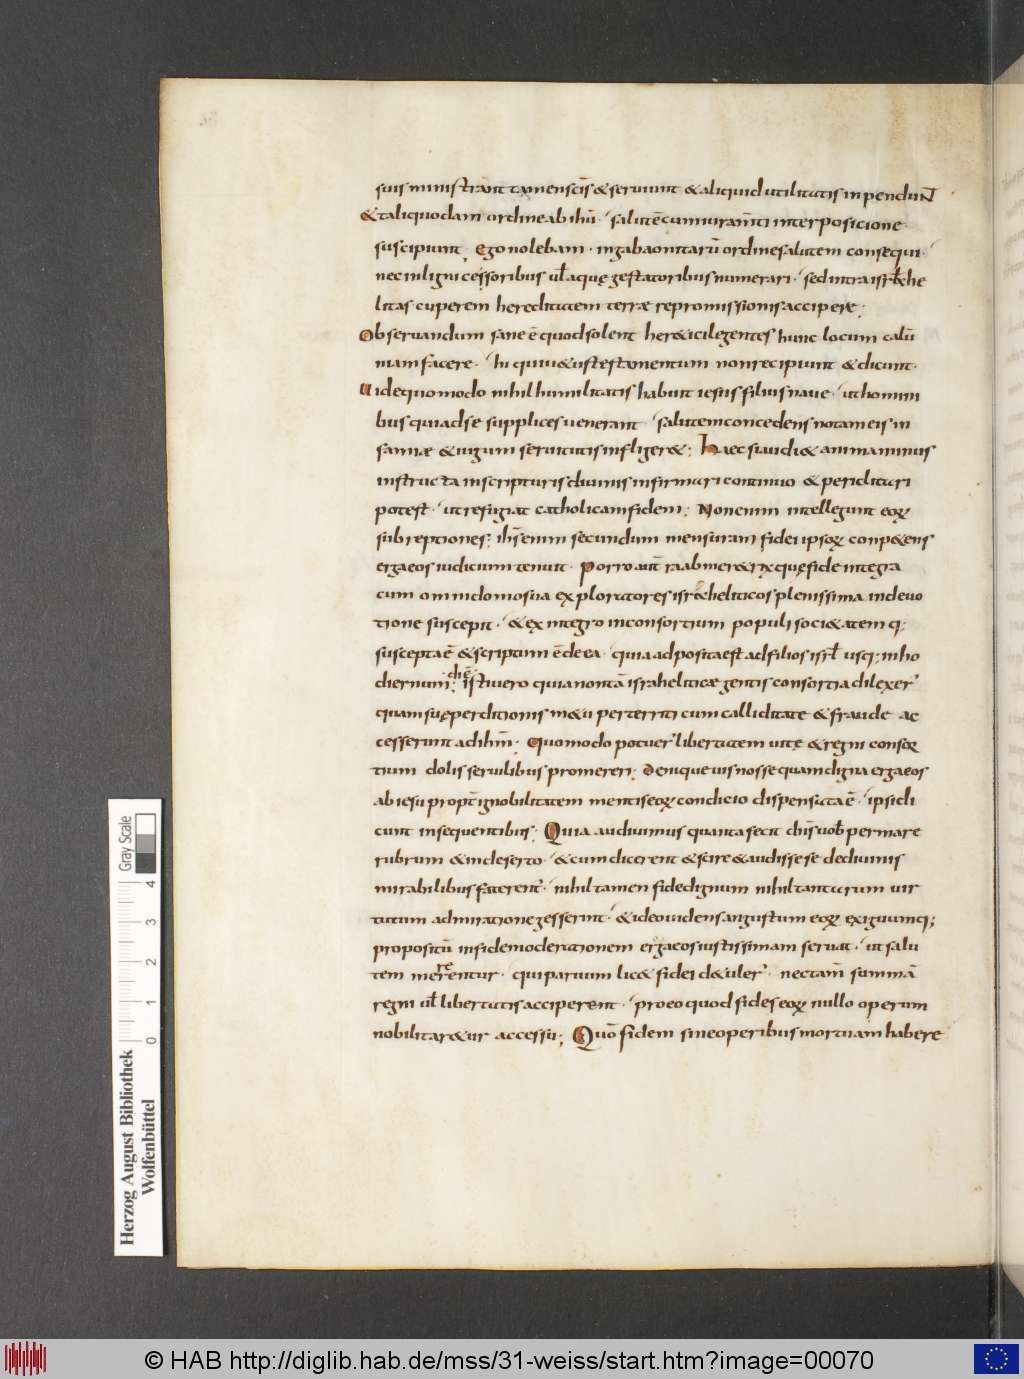 suis ministrant tamen scīs & seruiunt & aliquid utilitatis inpenduN̄
& taliquodam ordine ab ihū. salutē cum iuram̄ti interposicione
suscipiunt. Ego nolebam. in gabaonitarū ordine salutem consequi.
nec in lignicessoribus ul̄ aquę gestatoribus numerari. sed intra isr̄l&he
litas cuperem hereditatem terrae repromissionis accipere;
Obseruandum sane ē quod solent her&ici legentes hunc locum calū
niam facere. hi qui u&us testamentum non recipiunt & dicunt.
Uide quomodo nihil humilitatis habuit iesus filius naue. ut homini
bus qui ad se supplices uenerant. salutem concedens notam eis in
famiæ & iugum seruitutis infliger&; Haec si audi& anima minus
instructa in scripturis diuinis infirmari continuo & periclitari
potest. ut refugiat catholicam fidem; Non enim intellegunt eoꝝ
subreptiones; ihs̄ enim secundum mensuram fidei ipsoꝝ conp&ens
erga eos iudicium tenuit. Porro aut̄ raab mer&rix quę fide integra
cum omni domo sua exploratores isr&heliticos plenissima in deuo
tione suscepit. & ex integro in consortium populi soci&atemq;
suscepta ē & scriptum ē de ea. quia adposita est ad filios isr̄l usq; in ho
diernum diē; isti uero quia non tā israheliticæ gentis consortia dilexer̄
quam suę perditionis m&u perterriti cum calliditate & fraude ac
cesserunt ad ihm̄; Quomodo potuer̄ libertatem uitę & regni consor
tium dolis seruilibus promereri; Denique uis nosse quam digna erga eos
ab iesu propt̄ ignobilitatem mentis eoꝝ condicio dispensata ē. ipsi di
cunt in sequentibus; Quia audiuimus quanta fecit dn̄s uob̄ per mare
rubrum & in deserto. & cum dicerent & scire & audisse se de diuinis
mirabilibus faterent̄. nihil tamen fide dignum nihil tantarum uir
tutum admiratione gesserint. & ideo uidens angustum eoꝝ exiguumq;
propositū in fide moderationem erga eos iustissimam seruat. ut salu
tem mererentur. qui paruum lic& fidei d&uler̄. nec tam̄ summā
regni ul̄ libertatis acciperent. pro eo quod fides eoꝝ nullo operum
nobilitar&ur accessu; Quō fidem sine operibus mortuam habere
Herzog August Bibliothek
Wolfenbüttel
0 1 2 3 4
Gray Scale
© HAB http://diglib.hab.de/mss/31-weiss/start.htm?image=00070